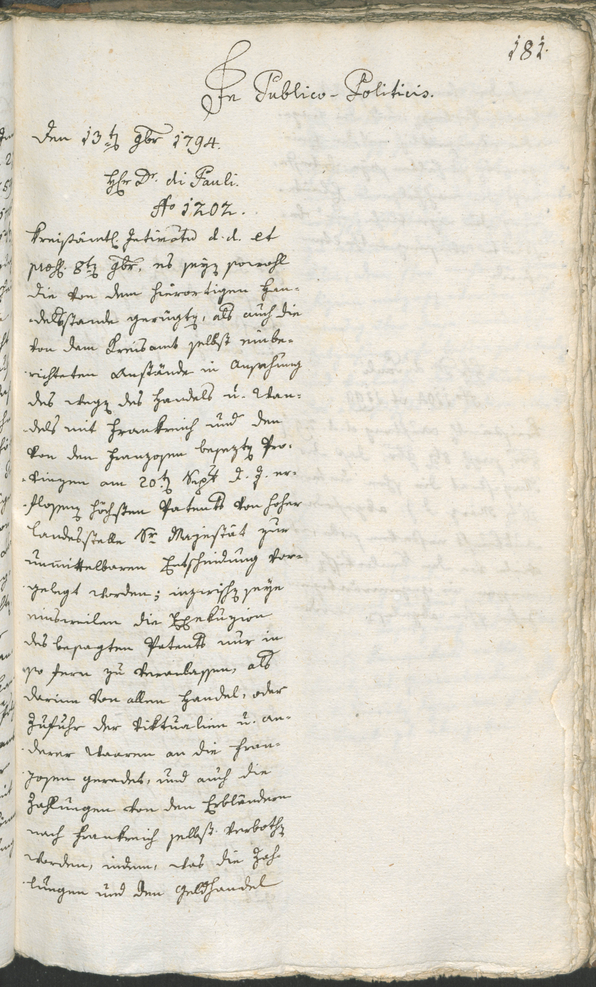 181.
In Publico-Politicis.
Den 13tn 9br 1794.
Hhr Dr. di Pauli.
No 1202.
Kreisämtl. Intimatn d. d. et
praes. 8tn 9br, es seyn sowohl
die von dem hierortigen Han-
delsstande gerügtn, als auch die
von dem Kreisamt selbst einbe-
richteten Anstände in Ansehung
des wegn des Handels u. Wan-
dels mit Frankreich und den
von den Franzosen besezten Pro-
vinzen am 20tn Sept d. J. er-
flossenen höchsten Patents von hoher
Landesstelle Sr Majestät zur
unmittelbaren Entscheidung vor-
gelegt worden; inzwischn seye
einsweilen die Exekuzion
des besagten Patents nur in
so fern zu veranlassen, als
darinn von allen Handel, oder
Zufuhr der Viktualien u. an-
derer Waaren an die Fran-
zosen geredet, und auch die
Zahlungen von den Erbländern
nach Frankreich selbst verbothn
worden, indem, was die Zah-
lungen und den Geldhandel